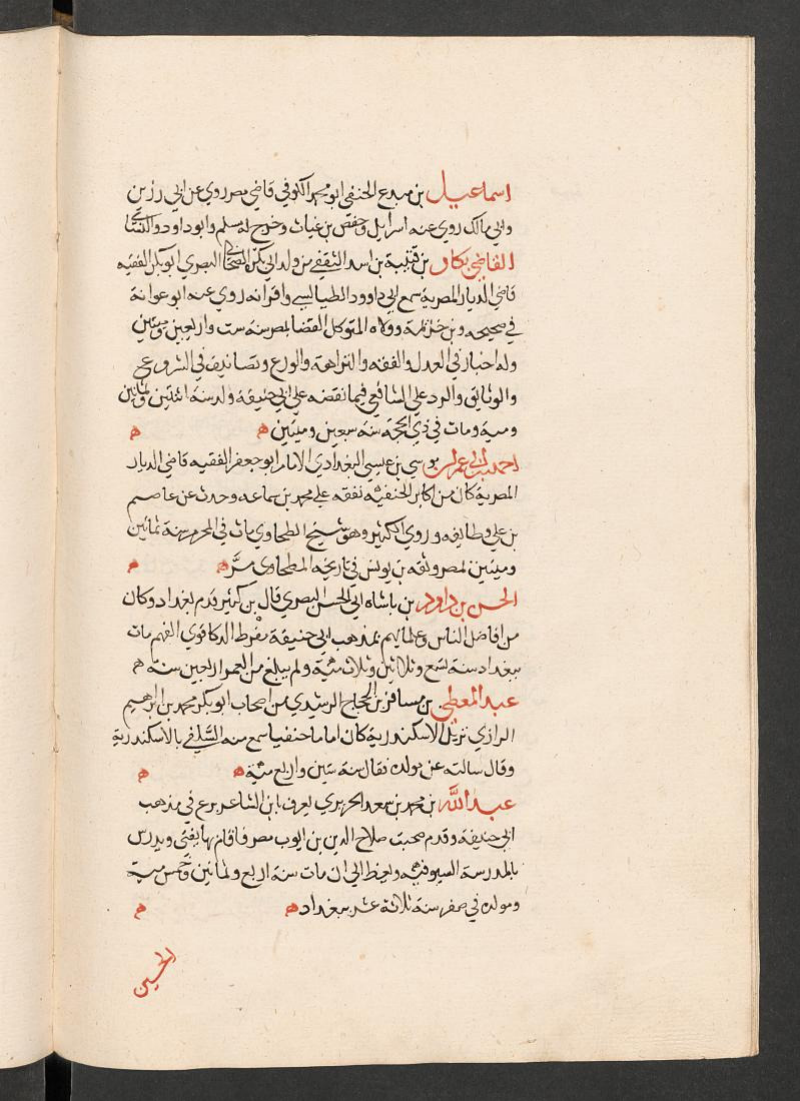 اسماعيل بن سبدع الحنفي ابو محمد الكوفي قاضي مصر روي عن ابي رزين
وابي مالك روي عنه اسرايل وحفص بن غياث وخرج له مسلم وابو داود والنسائي
القاضي بكار بن قتيبة بن اسد الثقفي من ولد ابي بكرة الصحابي البصري ابو بكر الفقيه
قاضي الديار المصرية سمع ابي داوود الطيالسي واقرانه روي عنه ابو عوانة
في صحيحه وبن خزيمة وولاه المتوكل القضا بمصر سنه ست واربعين وميتين
وله اخبار في العدل والفقه والنزاهة والورع وتصانيف في الشروع
والوثايق والرد علي الشافعي فيما نقضه علي ابي حنيفة ولد سنة اثنتين وثمانين
وميه ومات في ذي الحجة سنه سبعين وميتين ه ه
احمد بن ابي عمران موسي بن عيسي البغدادي الامام ابو جعفر الفقيه قاضي الديار
المصرية كان من اكابر الحنفيه تفقه علي محمد بن سماعه وحدث عن عاصم
بن علي وطايفه وروي الكثير وهو شيخ الطحاوي مات في المحرم سنة ثمانين
وميتين لمصر وثقه بن يونس في تاريخه الطحاوي مر ه ه
الحسن بن داود بن بابشاه ابي الحسن البصري قال بن كثير قدم بغداد وكان
من افاضل الناس وعلمايهم بمذهب ابي حنيفة مفرط الذكا قوي الفهم مات
ببغداد سنة تسع وثلاثين وثلاث ميه ولم يبلغ من العمر اربعين سنة ه
عبد المعطي بن مسافر بن الحجاج الرشيدي من اصحاب ابو بكر محمد بن ابرهيم
الرازي نزيل الاسكندرية كان اماما حنفيا سمع منه السلفي بالاسكندرية
وقال سالته عن مولده فقال سنة ستين واربع ميه ه ه
عبد الله بن محمد بن سعد الحريري يعرف بابن الشاعر برع في مذهب
ابي حنيفه وقدم صحبت صلاح الدين بن ايوب مصر فاقام بها يفتي ويدرس
بالمدرسة السيوفيه ويعظ الي ان مات سنة اربع وثمانين وخمس ميه
ومولده في صفر سنة ثلاثة عشر ببغداد ه ه
الحسين